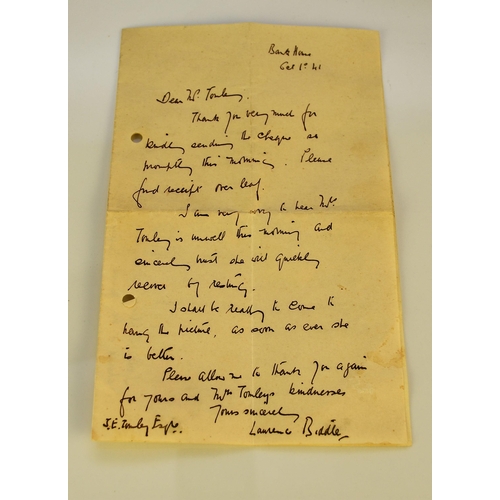 Bank House
Oct 1st 41
Dear Mr. Townley.
Thank you very much for
kindly sending the cheque so
promptly this morning. Please
find receipt over leaf.
I am very sorry to hear Mrs.
Townley is unwell this morning and
sincerely trust she will quickly
recover by resting.
I shall be ready to come to
hang the picture, as soon as ever she
is better.
Please allow me to thank you again
for yours and Mrs Townleys kindnesses
Yours sincerely
J.E. Townley Esqre. Laurence Biddle,